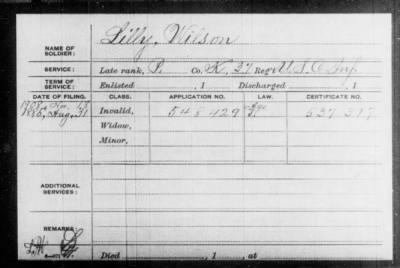 Lilly, Wilson
NAME OF SOLDIER:
SERVICE: Late rank, P. Co. K, 27 Reg't U.S.C. Inf.
TERM OF SERVICE: Enlisted , 1 Discharged , 1
DATE OF FILING. CLASS. APPLICATION NO. LAW. CERTIFICATE NO.
Aug. 31 Invalid, 548429 537317
Widow,
Minor,
ADDITIONAL SERVICES:
REMARKS:
Died , 1 , at